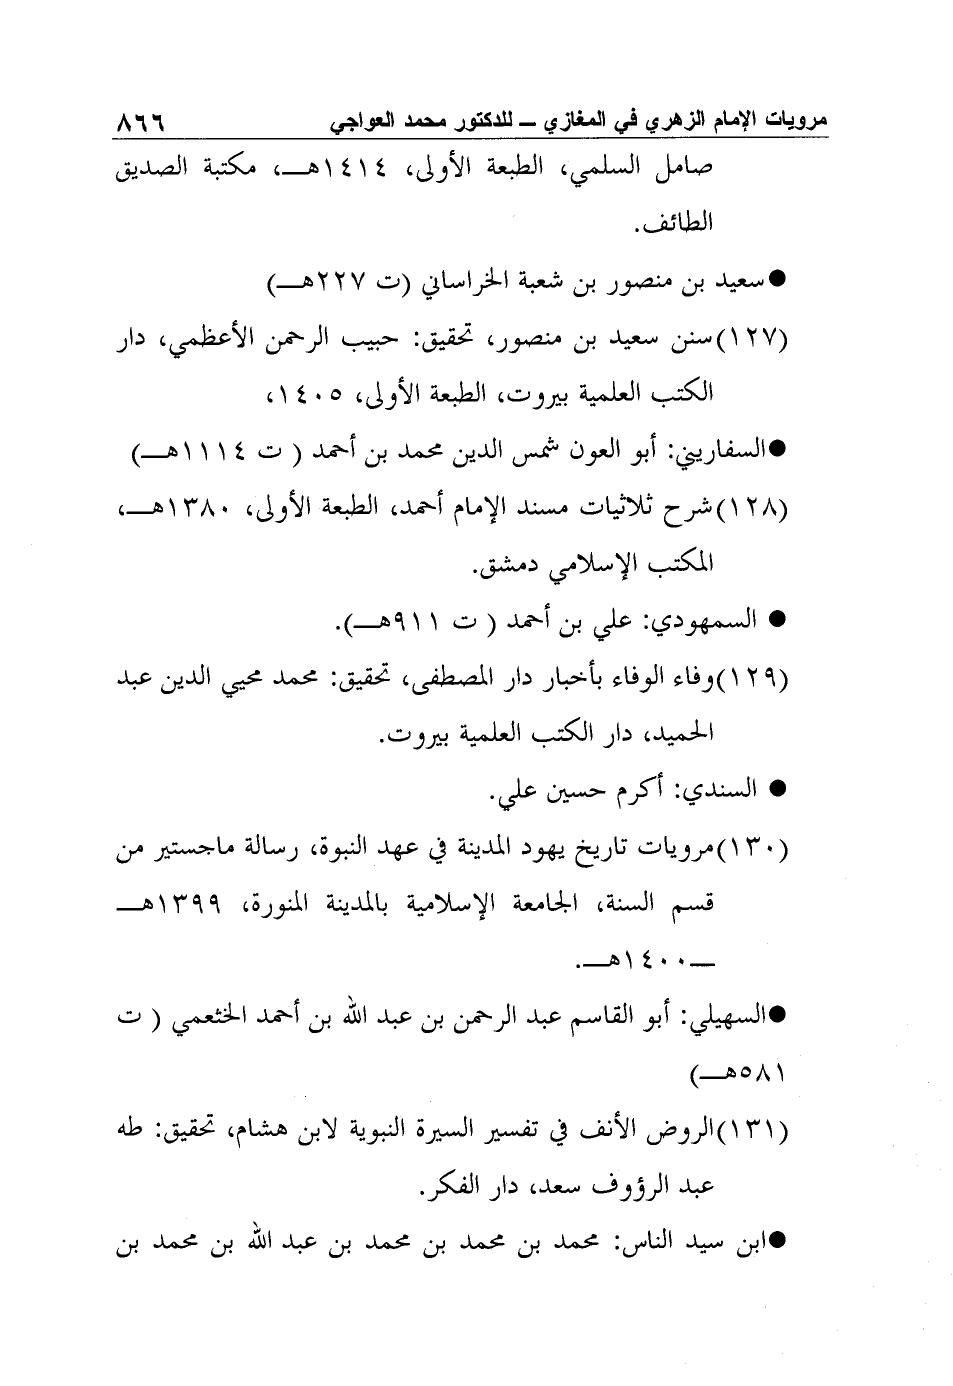 مرويات الإمام الزهري في المغازي ــ للدكتور محمد العواجي ٨٦٦
صامل السلمي، الطبعة الأولى، ١٤١٤هــ، مكتبة الصديق
الطائف.
●سعيد بن منصور بن شعبة الخراساني (ت ٢٢٧هــ)
(١٢٧)سنن سعيد بن منصور، تحقيق: حبيب الرحمن الأعظمي، دار
الكتب العلمية بيروت، الطبعة الأولى، ١٤٠٥،
●السفاريني: أبو العون شمس الدين محمد بن أحمد ( ت ١١١٤هــ)
(١٢٨)شرح ثلاثيات مسند الإمام أحمد، الطبعة الأولى، ١٣٨٠هــ،
المكتب الإسلامي دمشق.
● السمهودي: علي بن أحمد ( ت ٩١١هــ).
(١٢٩)وفاء الوفاء بأخبار دار المصطفى، تحقيق: محمد محيي الدين عبد
الحميد، دار الكتب العلمية بيروت.
● السندي: أكرم حسين علي.
(١٣٠)مرويات تاريخ يهود المدينة في عهد النبوة، رسالة ماجستير من
قسم السنة، الجامعة الإسلامية بالمدينة المنورة، ١٣٩٩هــ
ــ١٤٠٠هــ.
●السهيلي: أبو القاسم عبد الرحمن بن عبد الله بن أحمد الخثعمي ( ت
٥٨١هــ)
(١٣١)الروض الأنف في تفسير السيرة النبوية لابن هشام، تحقيق: طه
عبد الرؤوف سعد، دار الفكر.
●ابن سيد الناس: محمد بن محمد بن محمد بن عبد الله بن محمد بن